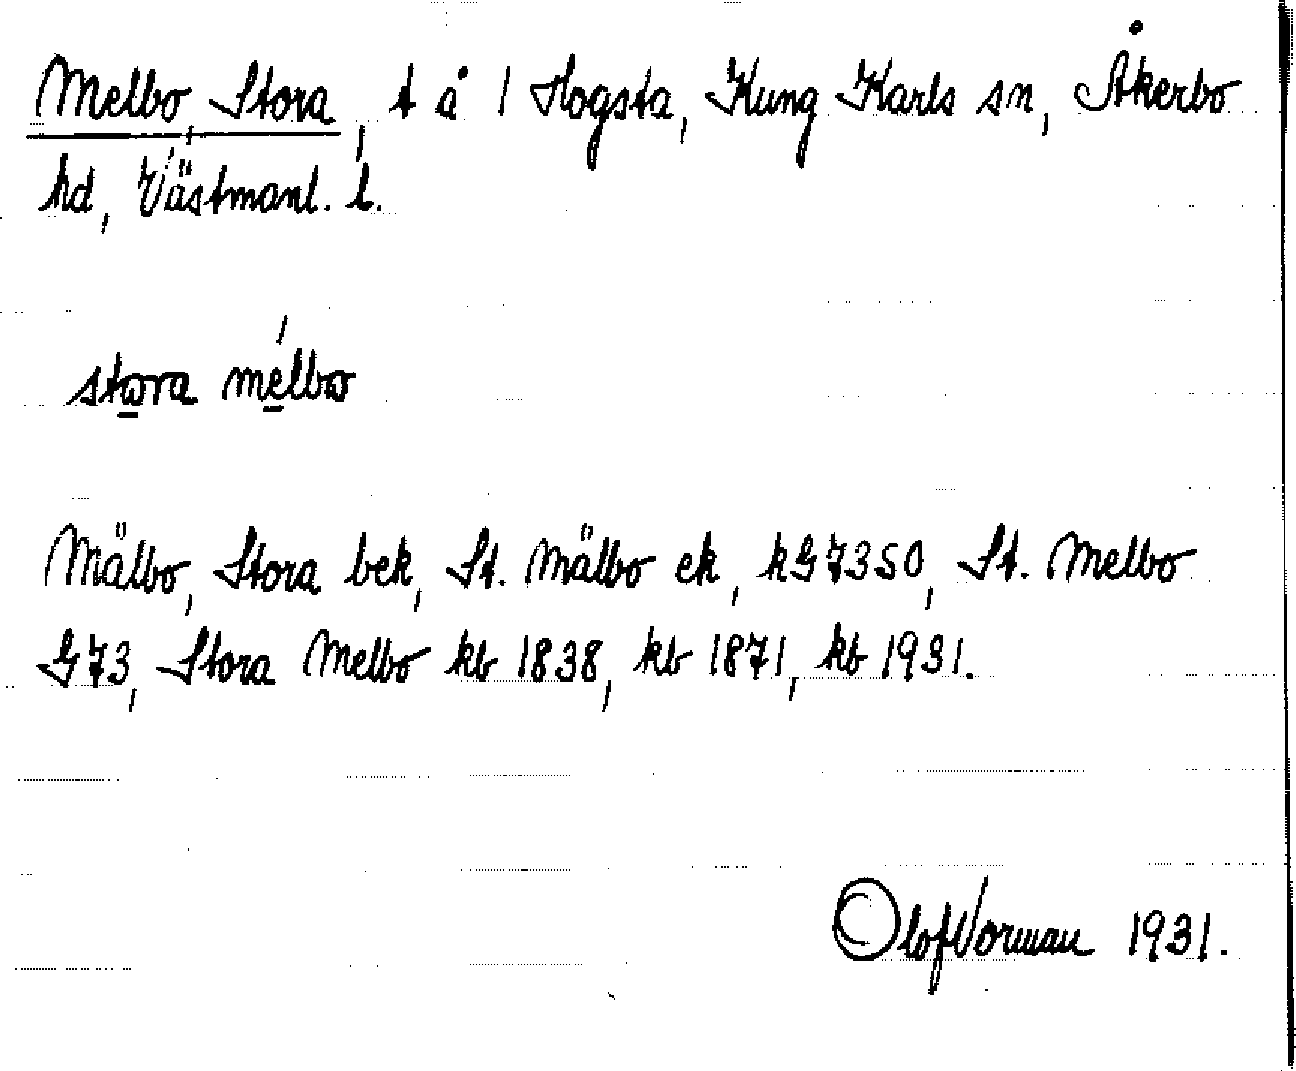 Melbo, Stora, t å 1 Hogsta, Kung Karls sn, Åkerbo
hd, Västmanl. l.
stora mélbo
Mälbo, Stora bek, St. Mälbo ek, kG7350, St. Melbo
G73, Stora Melbo kb 1838, kb 1871, kb 1931.
Olof Vorman 1931.